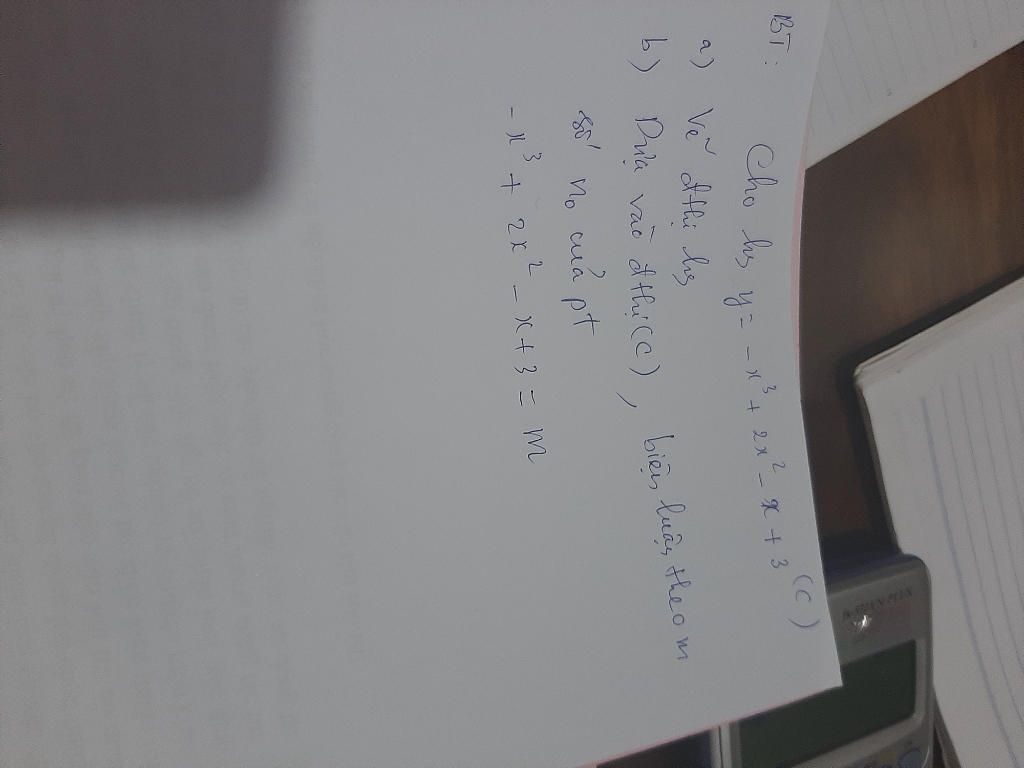 BT: Cho hs y = -x³ + 2x² - x + 3 (C)
a) Vẽ đthị hs
b) Dựa vào đthị (C), biện luận theo m
số n₀ của pt
-x³ + 2x² - x + 3 = m